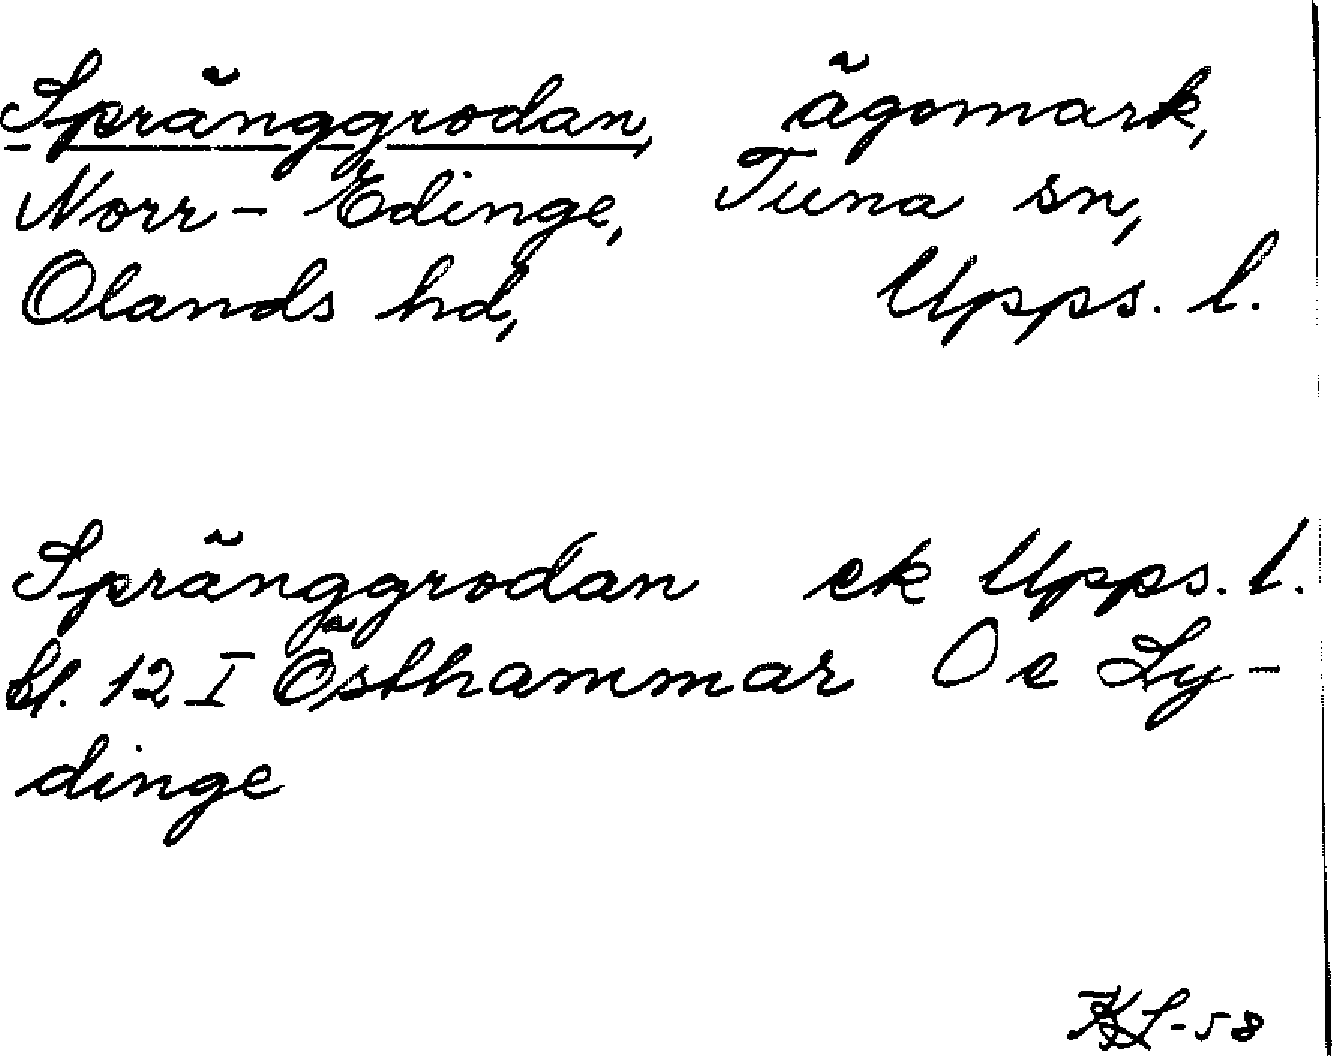 Spränggrodan, ägomark,
Norr-Edinge, Tuna sn,
Olands hd, Upps. l.
Spränggrodan ek Upps. l.
bl. 12 I Östhammar O e Ly-
dinge
KL-58